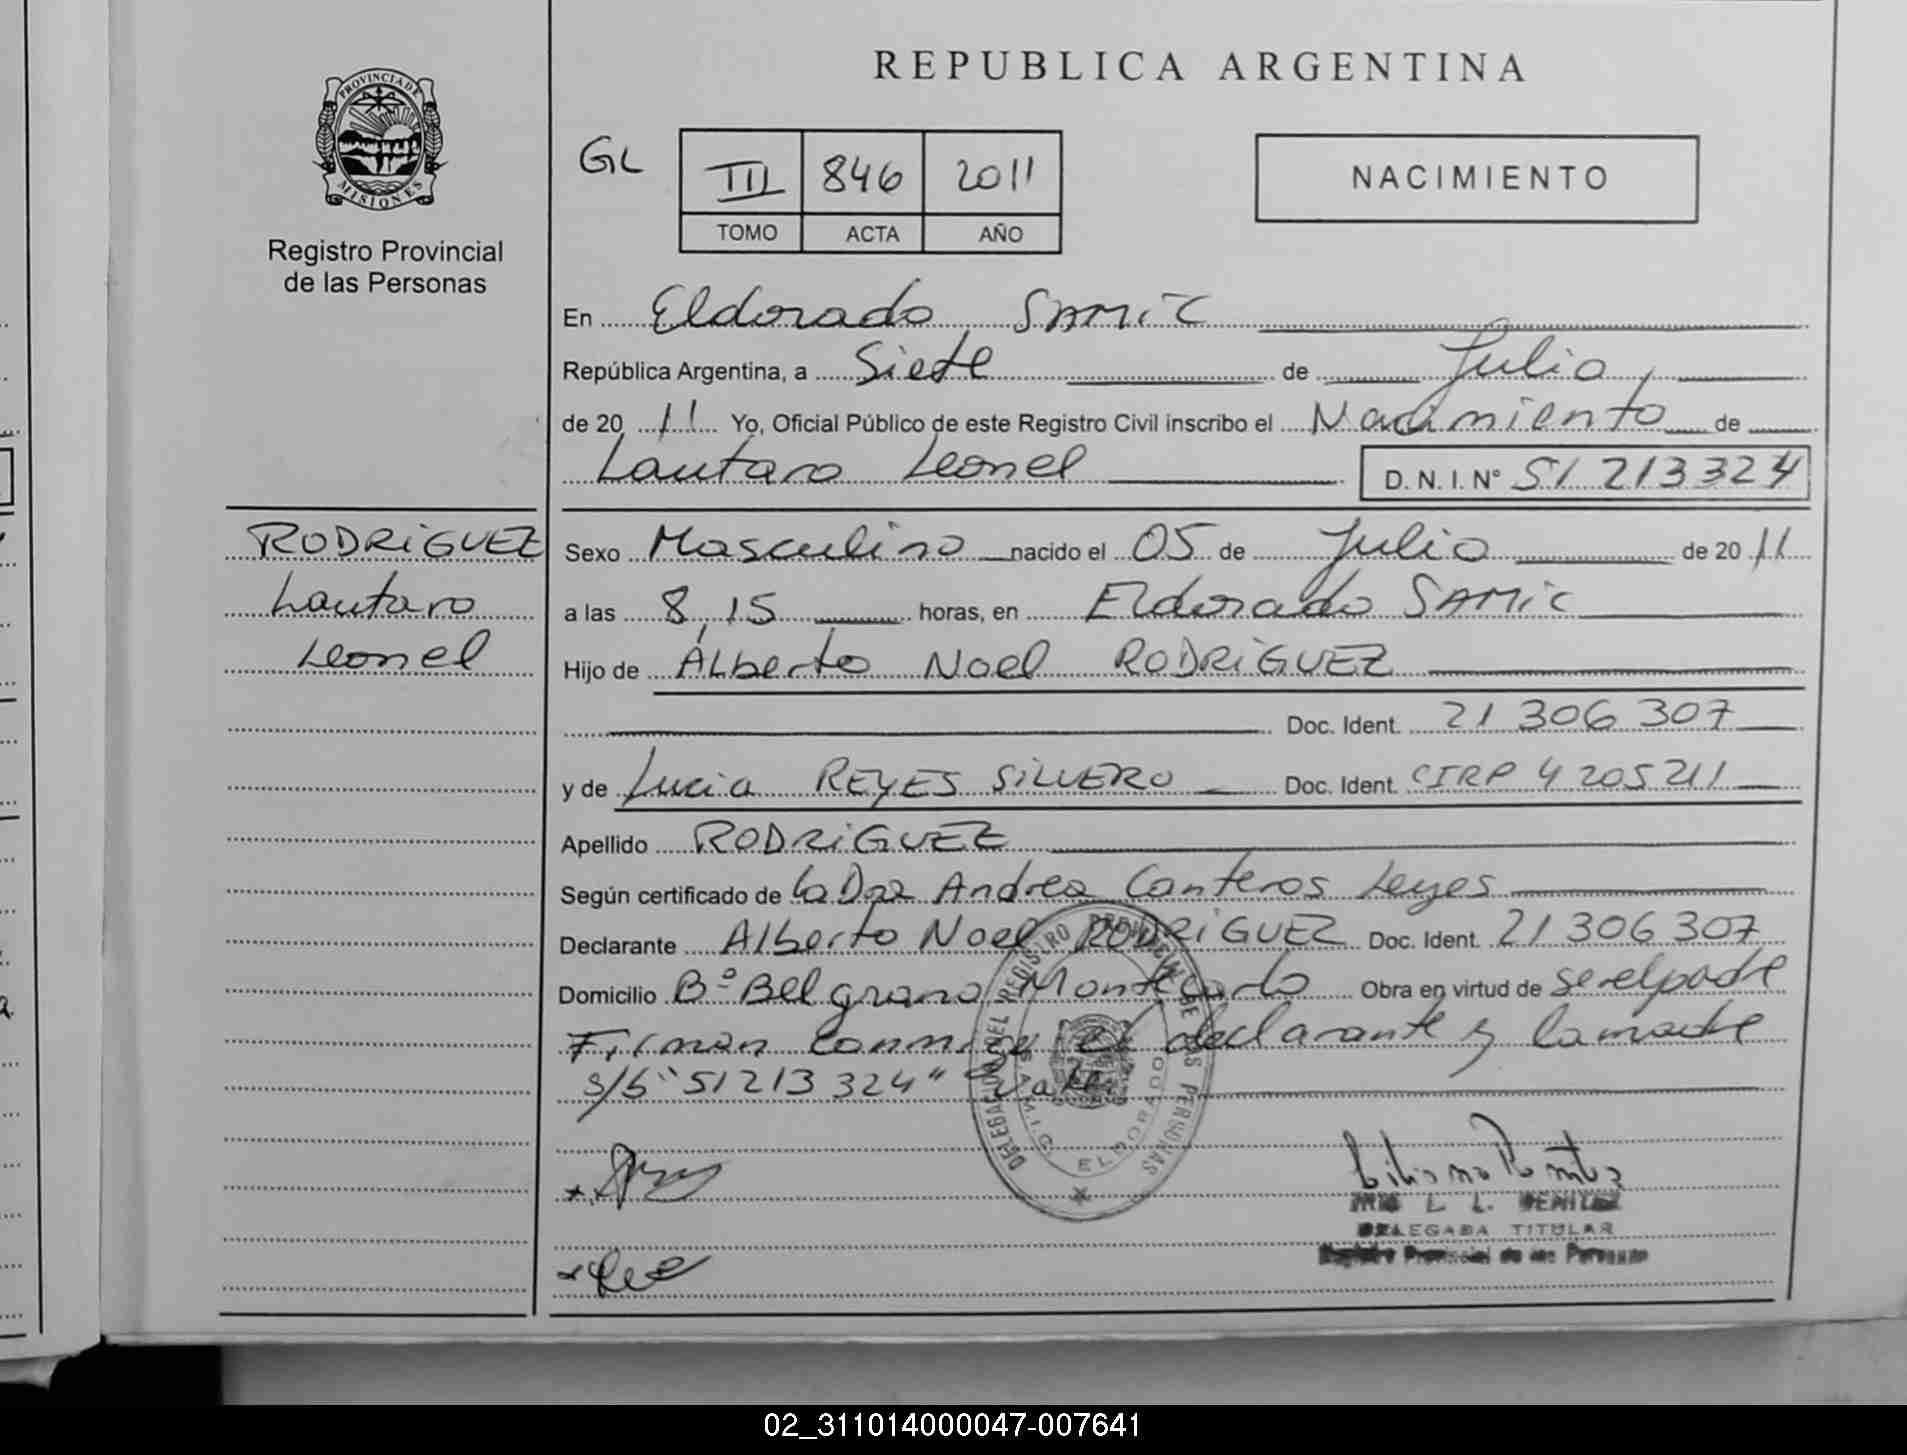 REPUBLICA ARGENTINA
PROVINCIA DE
MISIONES
Registro Provincial
de las Personas
GL
III 846 2011
TOMO ACTA AÑO
NACIMIENTO
En Eldorado, SAMIC
República Argentina, a Siete de Julio,
de 20 11 Yo, Oficial Público de este Registro Civil inscribo el Nacimiento de
Lautaro Leonel D. N. I. Nº 51 213 324
RODRIGUEZ
Lautaro
Leonel
Sexo Masculino nacido el 05 de Julio de 20 11
a las 8,15 horas, en Eldorado SAMIC
Hijo de Alberto Noel RODRIGUEZ
Doc. Ident. 21 306 307
y de Lucia REYES SILVERO Doc. Ident. CIRP 4 205 211
Apellido RODRIGUEZ
Según certificado de la Dra Andrea Canteros Leyes
Declarante Alberto Noel RODRIGUEZ Doc. Ident. 21 306 307
Domicilio Bº Belgrano Montecarlo Obra en virtud de ser el padre
Firman conmigo el declarante y la madre
s/b "51 213 324" vale
DELEGACION DEL REGISTRO PROVINCIAL DE LAS PERSONAS
ELDORADO
L. L.
DELEGADA TITULAR
Registro Provincial de las Personas
02_311014000047-007641